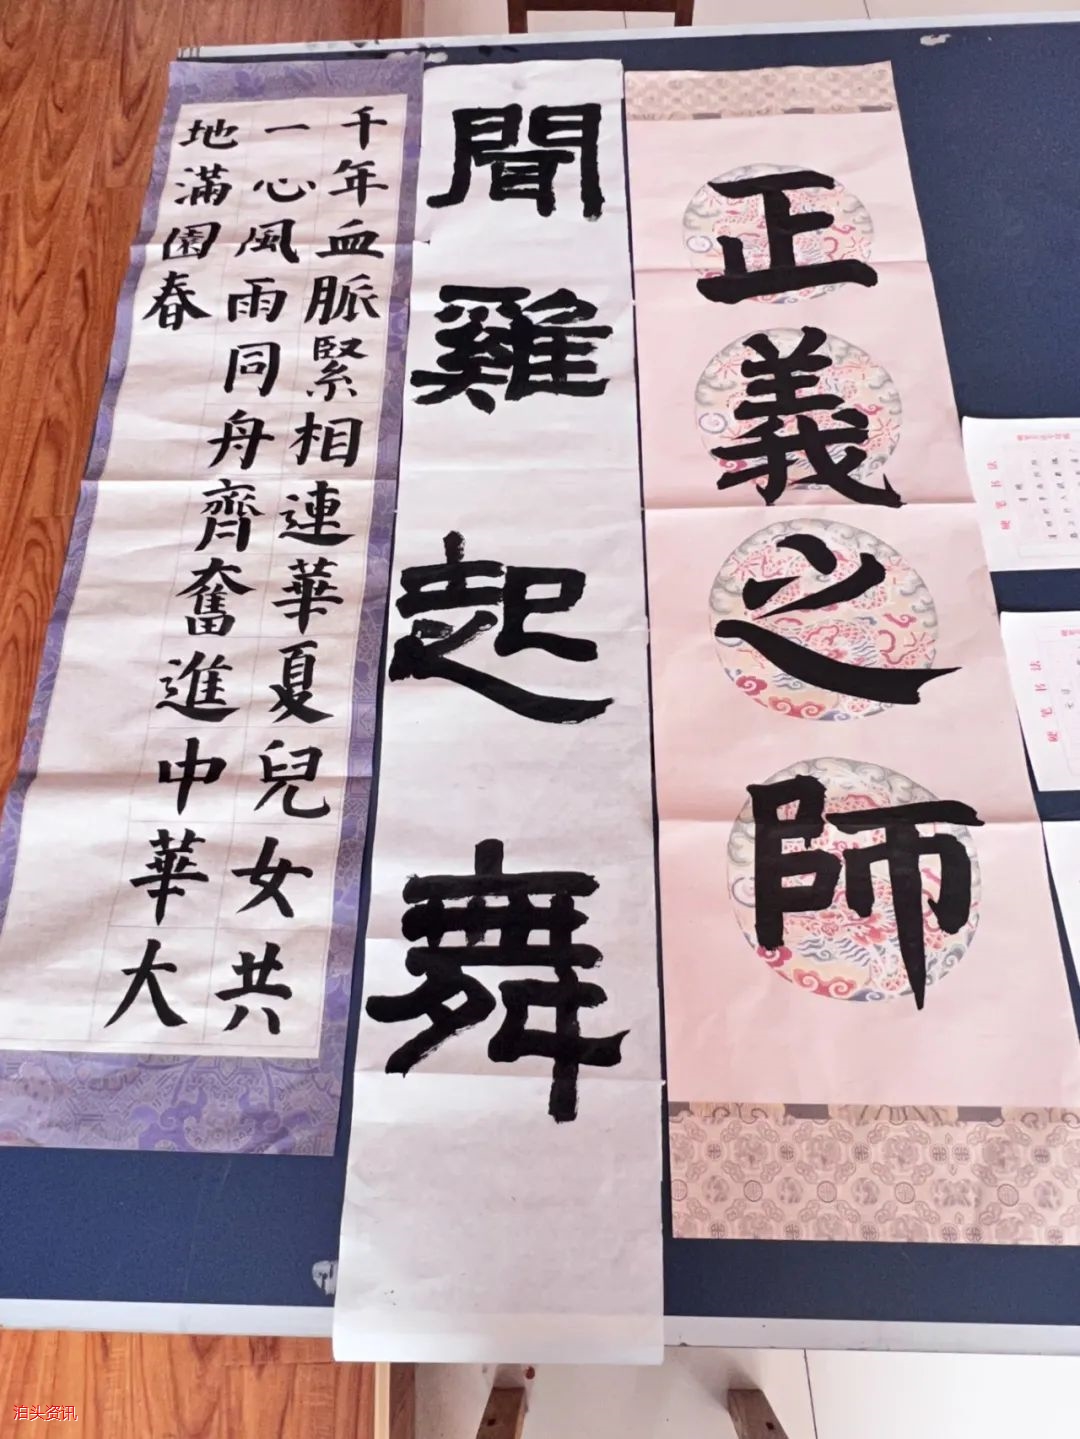 正義之師
聞雞起舞
千年血脈緊相連華夏兒女共
一心風雨同舟齊奮進中華大
地滿園春
硬笔书法
硬笔书法
泊头资讯